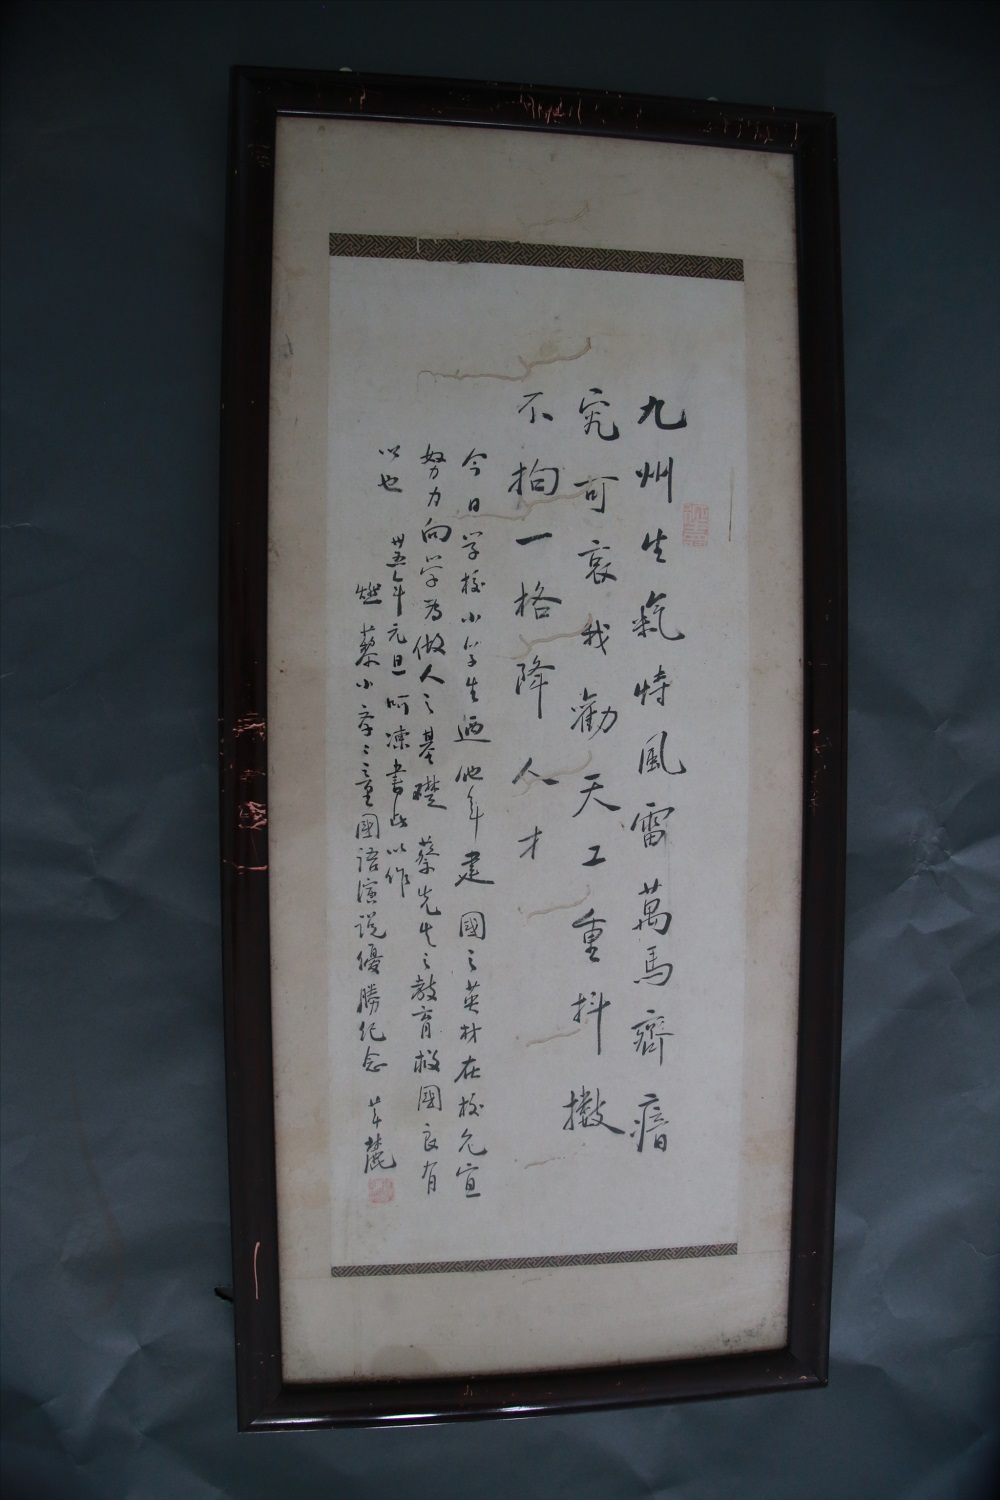 九州生氣恃風雷萬馬齊瘖
究可哀我勸天工重抖擻
不拘一格降人才
今日学校小学生廼他年建國之英材在校允宜
努力向学為做人之基礎蔡先生之教育救國良有
以也
卅五年元旦呵凍書此以作
蔡小章之童國語演説優勝纪念